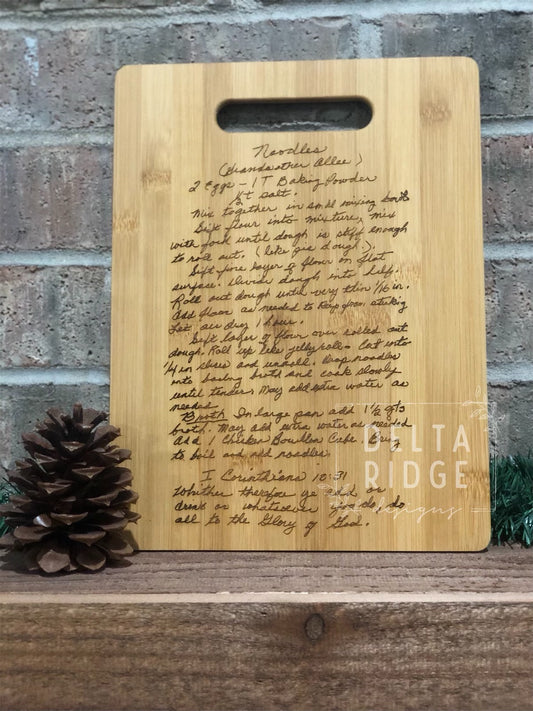 Noodles
(Grandmother Allee)
2 Eggs - 1 T Baking Powder
½ t salt.
Mix together in small mixing bowl
Sift flour into mixture, mix
with fork until dough is stiff enough
to roll out. (like pie dough).
Sift fine layer of flour on flat
surface. Divide dough into half.
Roll out dough until very thin 1/16 in.
Add flour as needed to keep from sticking
Let air dry 1 hour.
Sift layer of flour over rolled out
dough. Roll up like jelly roll. Cut into
1/4 in slices and unroll. Drop noodles
into boiling broth and cook slowly
until tender. May add extra water as
needed
Broth In large pan add 1½ qts
broth. May add extra water as needed
Add 1 Chicken Boullon Cube. Bring
to boil and add noodles.
I Corinthians 10:31
Whither therefore ye eat or
drink or whatsoever you do, do
all to the Glory of God.
DELTA
RIDGE
designs